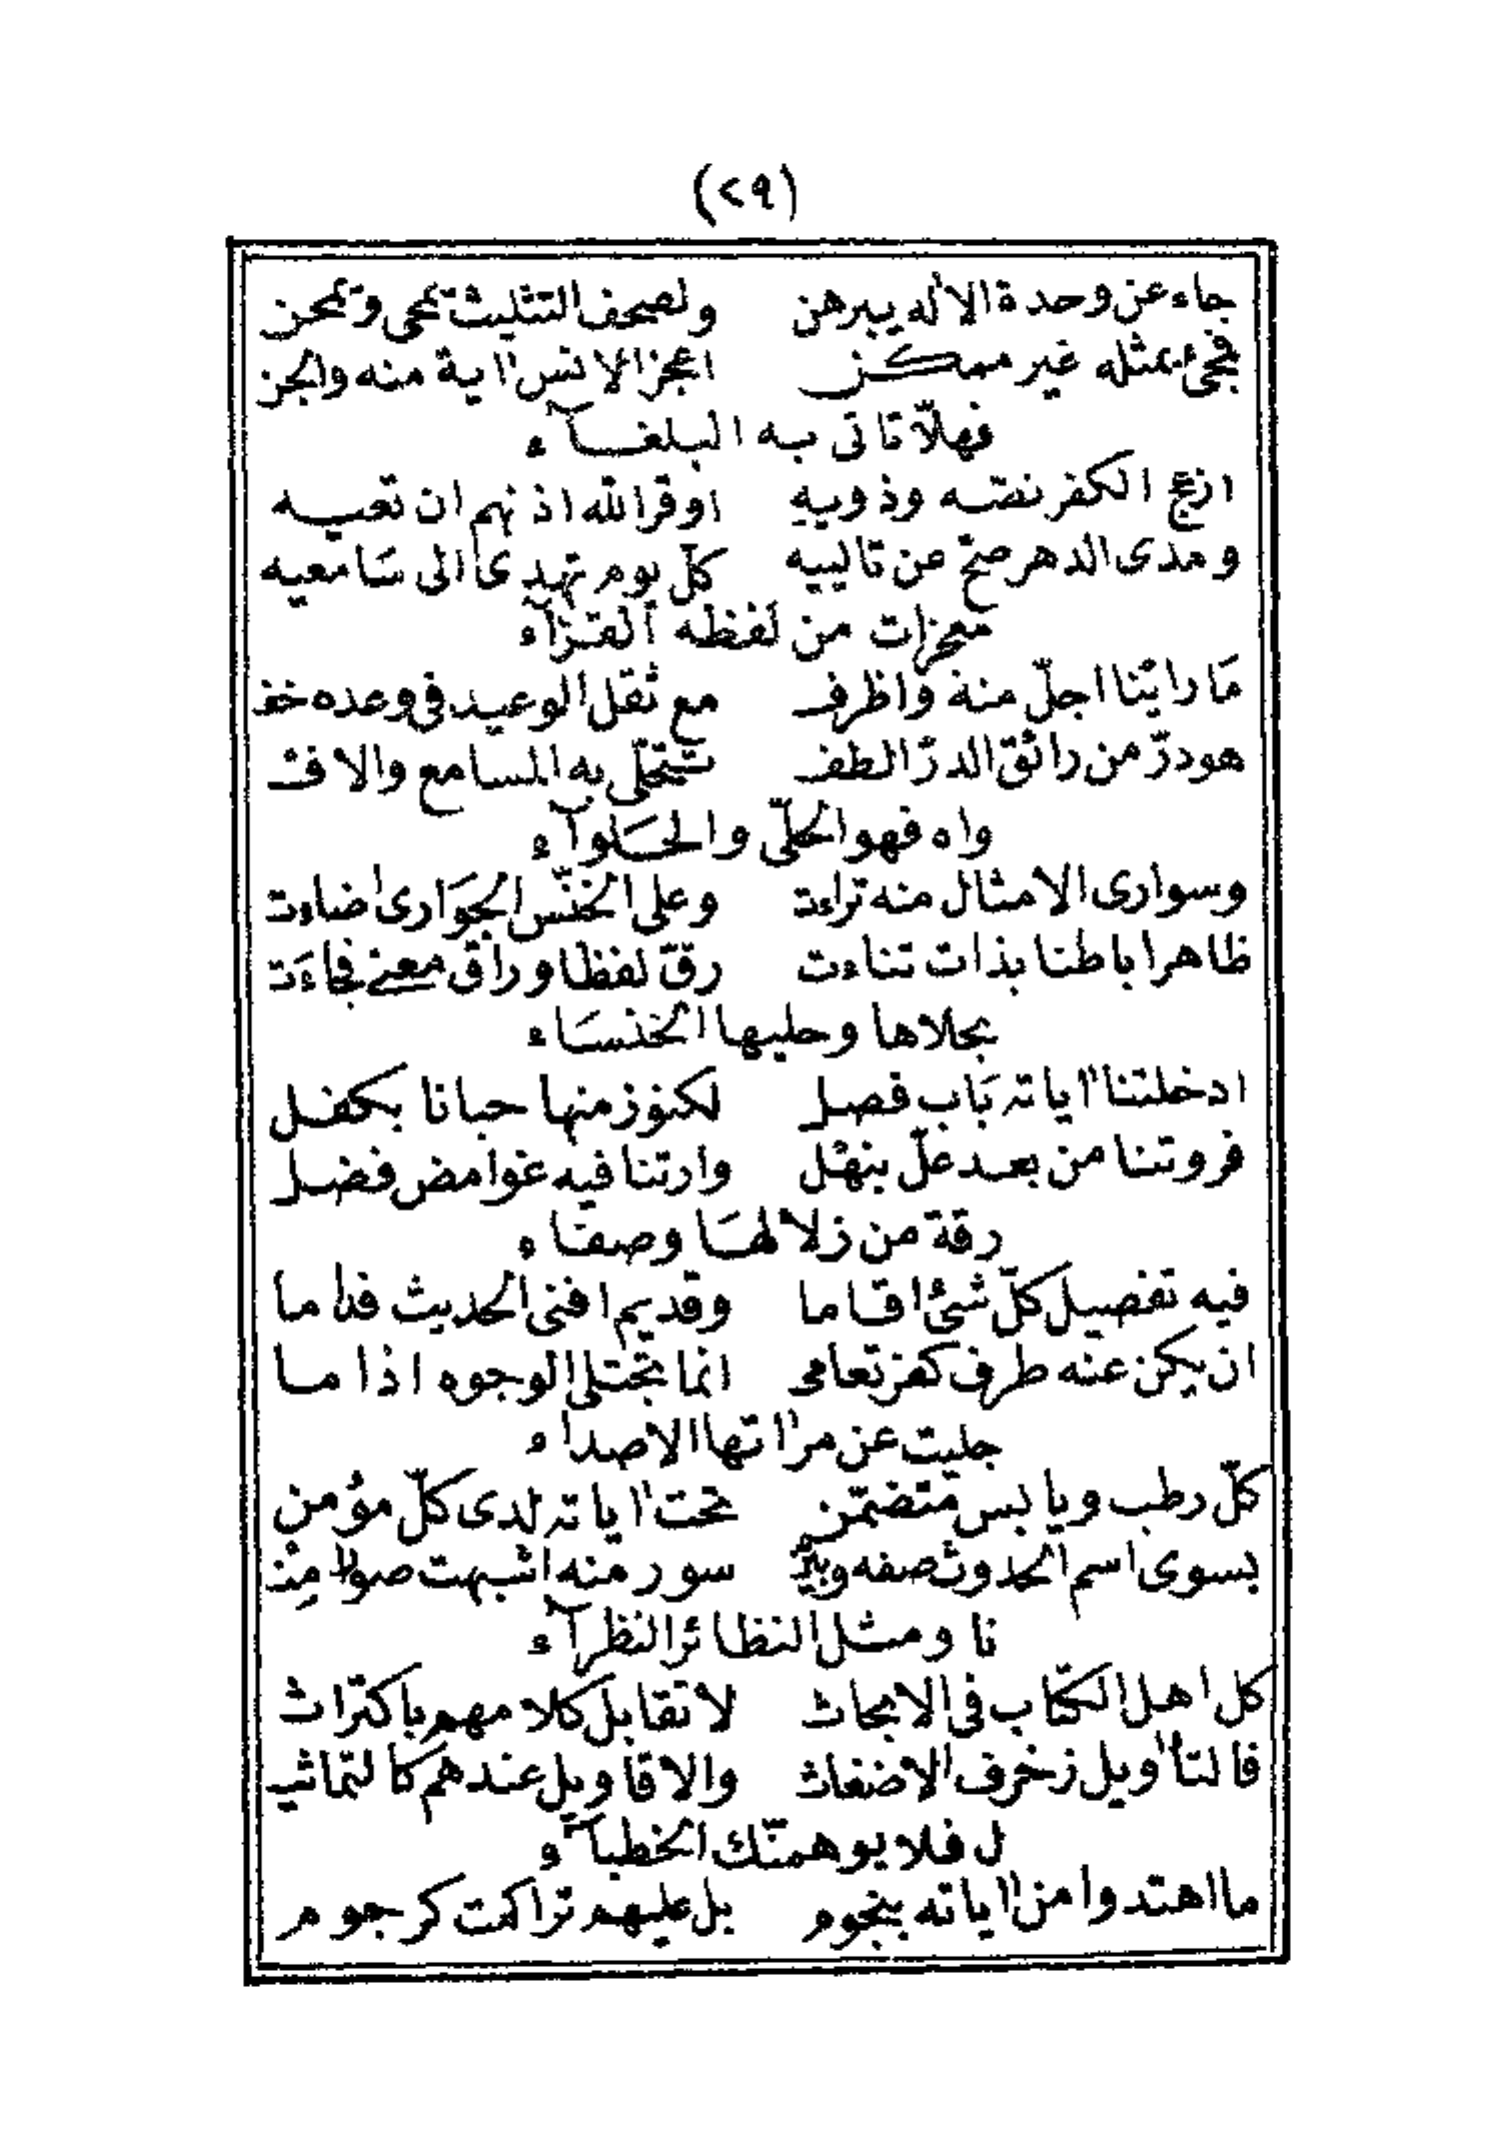 (٢٩)
جاء عن وحدة الاله يبرهن ولصحف التثليث تمحى وتمحن
فجئ بمثله غير ممكن اعجز الانس اية منه والجن
فهلّا تاتى به البلغآء
ازعج الكفر نصّه وذويه اوقر الله اذنهم ان تعيه
ومدى الدهر صحّ عن تاليه كلّ يوم تهدى الى سَامعيه
معجزات من لفظه القرّآء
مَا رايْنا اجلّ منه واظرف مع ثقل الوعيد فى وعده خف
هو درّ من رائق الدرّ الطف تتحلّى به المسامع والاف
واه فهو الحلّى والحَلوآء
وسوارى الامثال منه تراءت وعلى الخنّس الجوَارى اضاءت
ظاهرا باطنا بذات تناءت رقّ لفظا وراق معنى فجاءَت
بحلاها وحليها الخنسَاء
ادخلتنا اياته بَاب فصل لكنوز منها حبانا بكفل
فروتنا من بعد علّ بنهْل وارتنا فيه غوامض فضل
رقة من زلالهَا وصفاء
فيه تفصيل كلّ شئ اقاما وقديم افنى الحديث فداما
ان يكن عنه طرف كفر تعامى انما تجتلى الوجوه اذا ما
جليت عن مراتها الاصداء
كلّ رطب ويابس متضمّن تحت اياته لدى كلّ مؤمن
بسوى اسم الحدوث صفه وبيّن سور منه اشبهت صورا مِنْ
نا ومثل النظائر النظرآء
كل اهل الكتاب فى الابحاث لا تقابل كلامهم باكتراث
فالتأويل زخرف الاضغاث والاقاويل عندهم كالتماثيـ
ل فلا يوهمنّك الخطبآء
ما اهتدوا من اياته بنجوم بل عليهم تراكمت كرجوم